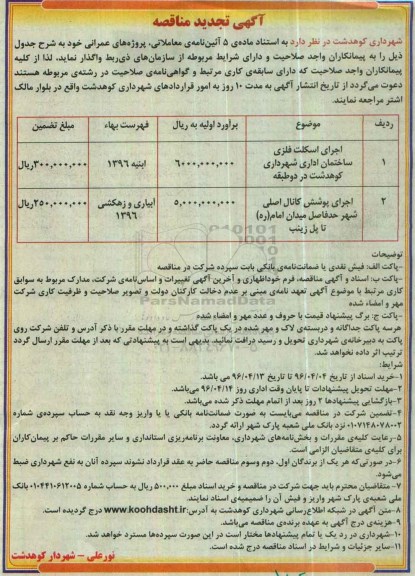 آگهی تجدید مناقصه
شهرداری کوهدشت در نظر دارد به استناد ماده‌ی ۵ آئین‌نامه‌ی معاملاتی، پروژه‌های عمرانی خود به شرح جدول
ذیل را به پیمانکاران واجد صلاحیت و دارای شرایط مربوطه از سازمان‌های ذی‌ربط واگذار نماید، لذا از کلیه
پیمانکاران واجد صلاحیت که دارای سابقه‌ی کاری مرتبط و گواهی‌نامه‌ی صلاحیت در رشته‌ی مربوطه هستند
دعوت می‌گردد از تاریخ انتشار آگهی به مدت ۱۰ روز به امور قراردادهای شهرداری کوهدشت واقع در بلوار مالک
اشتر مراجعه نمایند.
ردیف موضوع برآورد اولیه به ریال فهرست بهاء مبلغ تضمین
۱ اجرای اسکلت فلزی ساختمان اداری شهرداری کوهدشت در دوطبقه ۶۰۰۰,۰۰۰,۰۰۰ ابنیه ۱۳۹۶ ۳۰۰,۰۰۰,۰۰۰ریال
۲ اجرای پوشش کانال اصلی شهر حدفاصل میدان امام(ره) تا پل زینب ۵,۰۰۰,۰۰۰,۰۰۰ آبیاری و زهکشی ۱۳۹۶ ۲۵۰,۰۰۰,۰۰۰ریال
توضیحات
-پاکت الف: فیش نقدی یا ضمانت‌نامه‌ی بانکی بابت سپرده شرکت در مناقصه
-پاکت ب: اسناد و آگهی مناقصه، فرم خوداظهاری و آخرین آگهی تغییرات و اساس‌نامه‌ی شرکت، مدارک مربوط به سوابق
کاری مرتبط با موضوع آگهی تعهد نامه‌ی مبنی بر عدم دخالت کارکنان دولت و تصویر صلاحیت و ظرفیت کاری شرکت
مهر و امضاء شده
-پاکت ج: برگ پیشنهاد قیمت با حروف و عدد مهر و امضاء شده
هرسه پاکت جداگانه و دربسته‌ی لاک و مهر شده در یک پاکت گذاشته و در مهلت مقرر با ذکر آدرس و تلفن شرکت روی
پاکت به دبیرخانه‌ی شهرداری تحویل و رسید دریافت نمائید. بدیهی است به پیشنهاداتی که بعد از مهلت مقرر ارسال گردد
ترتیب اثر داده نخواهد شد.
شرایط:
۱-خرید اسناد از تاریخ ۹۶/۰۴/۰۴ تا تاریخ ۹۶/۰۴/۱۳ می باشد.
۲-مهلت تحویل پیشنهادات تا پایان وقت اداری روز ۹۶/۰۴/۱۴ می‌باشد.
۳-بازگشایی پیشنهادها ۲ روز بعد از اتمام مهلت ذکر شده می‌باشد.
۴-تضمین شرکت در مناقصه می‌بایست به صورت ضمانت‌نامه بانکی یا یا واریز وجه نقد به حساب سپرده‌ی شماره
۰۱۰۷۱۴۸۰۷۸۰۰۲ نزد بانک ملی شعبه پارک شهر ارائه گردد.
۵-رعایت کلیه‌ی مقررات و بخش‌نامه‌های شهرداری، معاونت برنامه‌ریزی استانداری و سایر مقررات حاکم بر پیمان‌کاران
برای کلیه‌ی متقاضیان الزامی است.
۶-در صورتی‌که هر یک از برندگان اول، دوم وسوم مناقصه حاضر به عقد قرارداد نشوند سپرده آنان به نفع شهرداری ضبط
می‌شود.
۷-متقاضیان محترم باید جهت شرکت در مناقصه و خرید اسناد مبلغ ۵۰۰,۰۰۰ ریال به حساب شماره ۰۱۰۴۴۱۰۶۱۲۰۰۵ بانک
ملی شعبه‌ی پارک شهر واریز و فیش آن را ضمیمه‌ی اسناد نمایند.
۸-متن آگهی در شبکه اطلاع‌رسانی شهرداری کوهدشت به آدرس: www.koohdasht.ir درج گردیده است.
۹-هزینه‌ی درج آگهی به عهده برنده‌ی مناقصه می‌باشد.
۱۰-شهرداری در رد یک یا تمام پیشنهادها مختار است در این صورت سپرده‌ها مسترد خواهد شد.
۱۱-سایر جزئیات و شرایط در اسناد مناقصه درج شده است.
نورعلی – شهردار کوهدشت
ParsNamadData